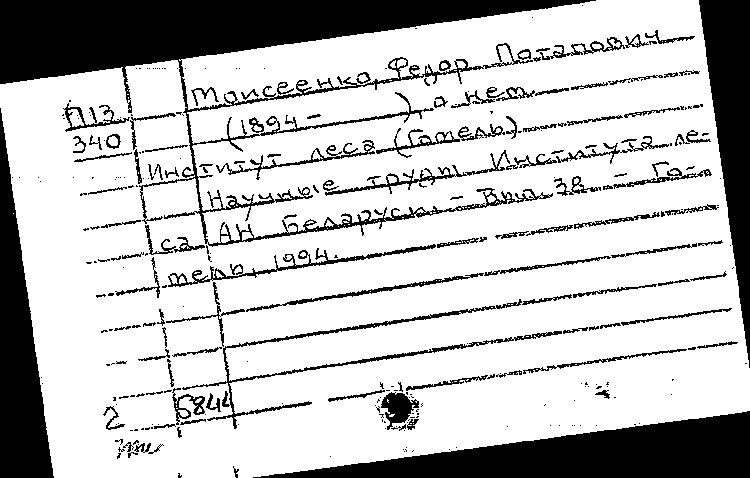 Моисеенко, Федор Потапович
П13
340
(1894 - ), о нем.
Институт леса (Гомель).
Научные труды Института ле-
са АН Беларуси. - Вып. 38 - Го-
мель, 1994.
2 5844